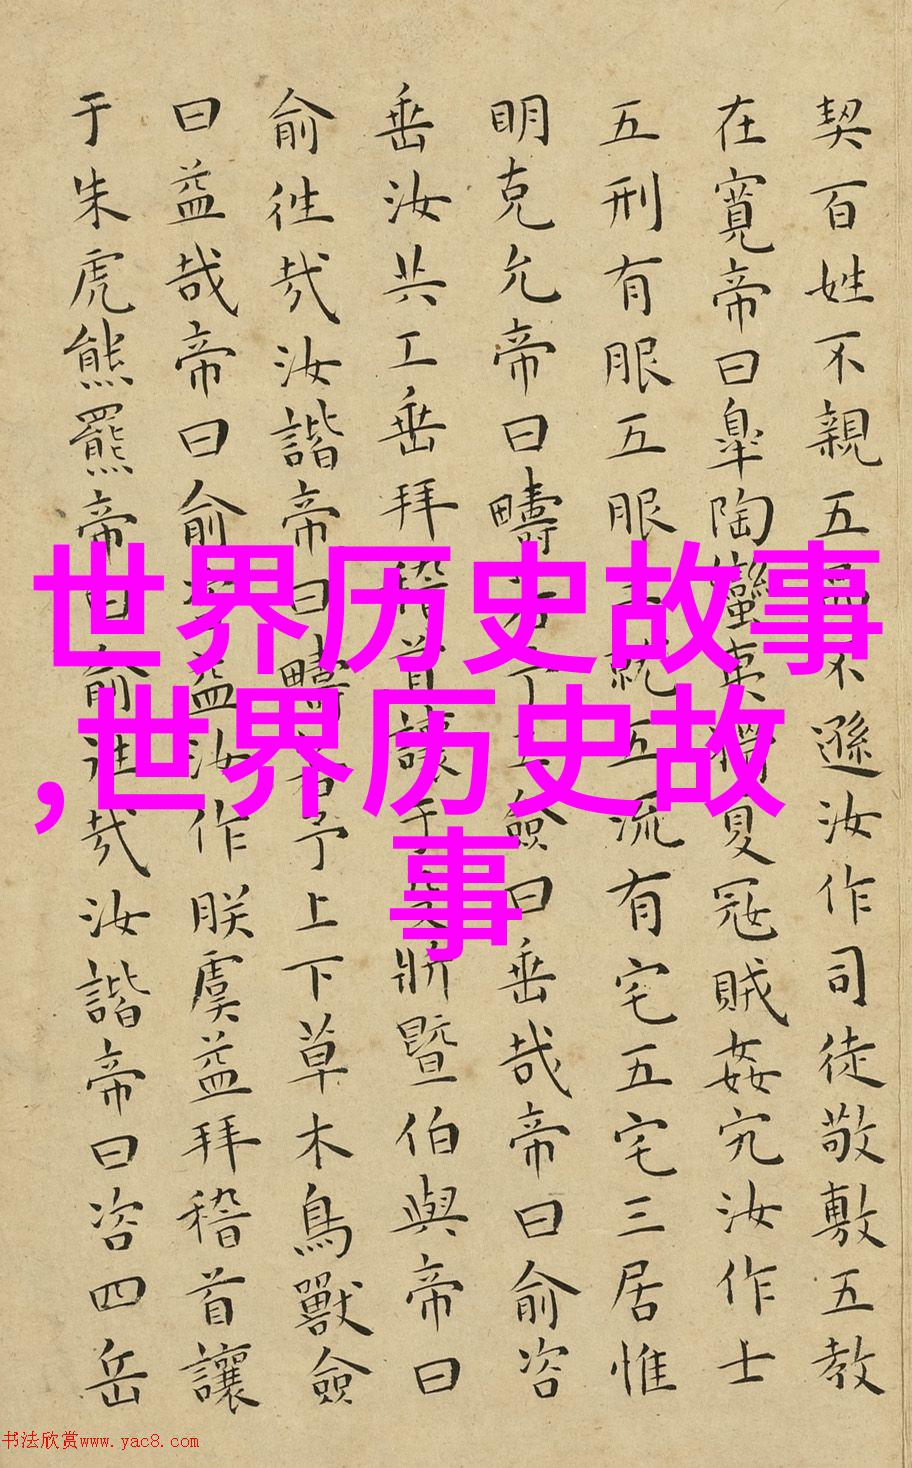 契百姓不親五品不遜汝作司徒敬敷五教
在寬帝曰臯陶蠻夷猾夏寇賊姦宄汝作士
五刑有服五服三就五流有宅五宅三居惟
明克允帝曰疇若予工僉曰垂哉帝曰俞咨
垂汝共工垂拜稽首讓于殳斨暨伯與帝曰
俞往哉汝諧帝曰疇若予上下草木鳥獸僉
曰益哉帝曰俞咨益汝作朕虞益拜稽首讓
于朱虎熊羆帝曰俞往哉汝諧帝曰咨四岳
世界历史故事
,世界历史故
事
书法欣赏www.yac8.com